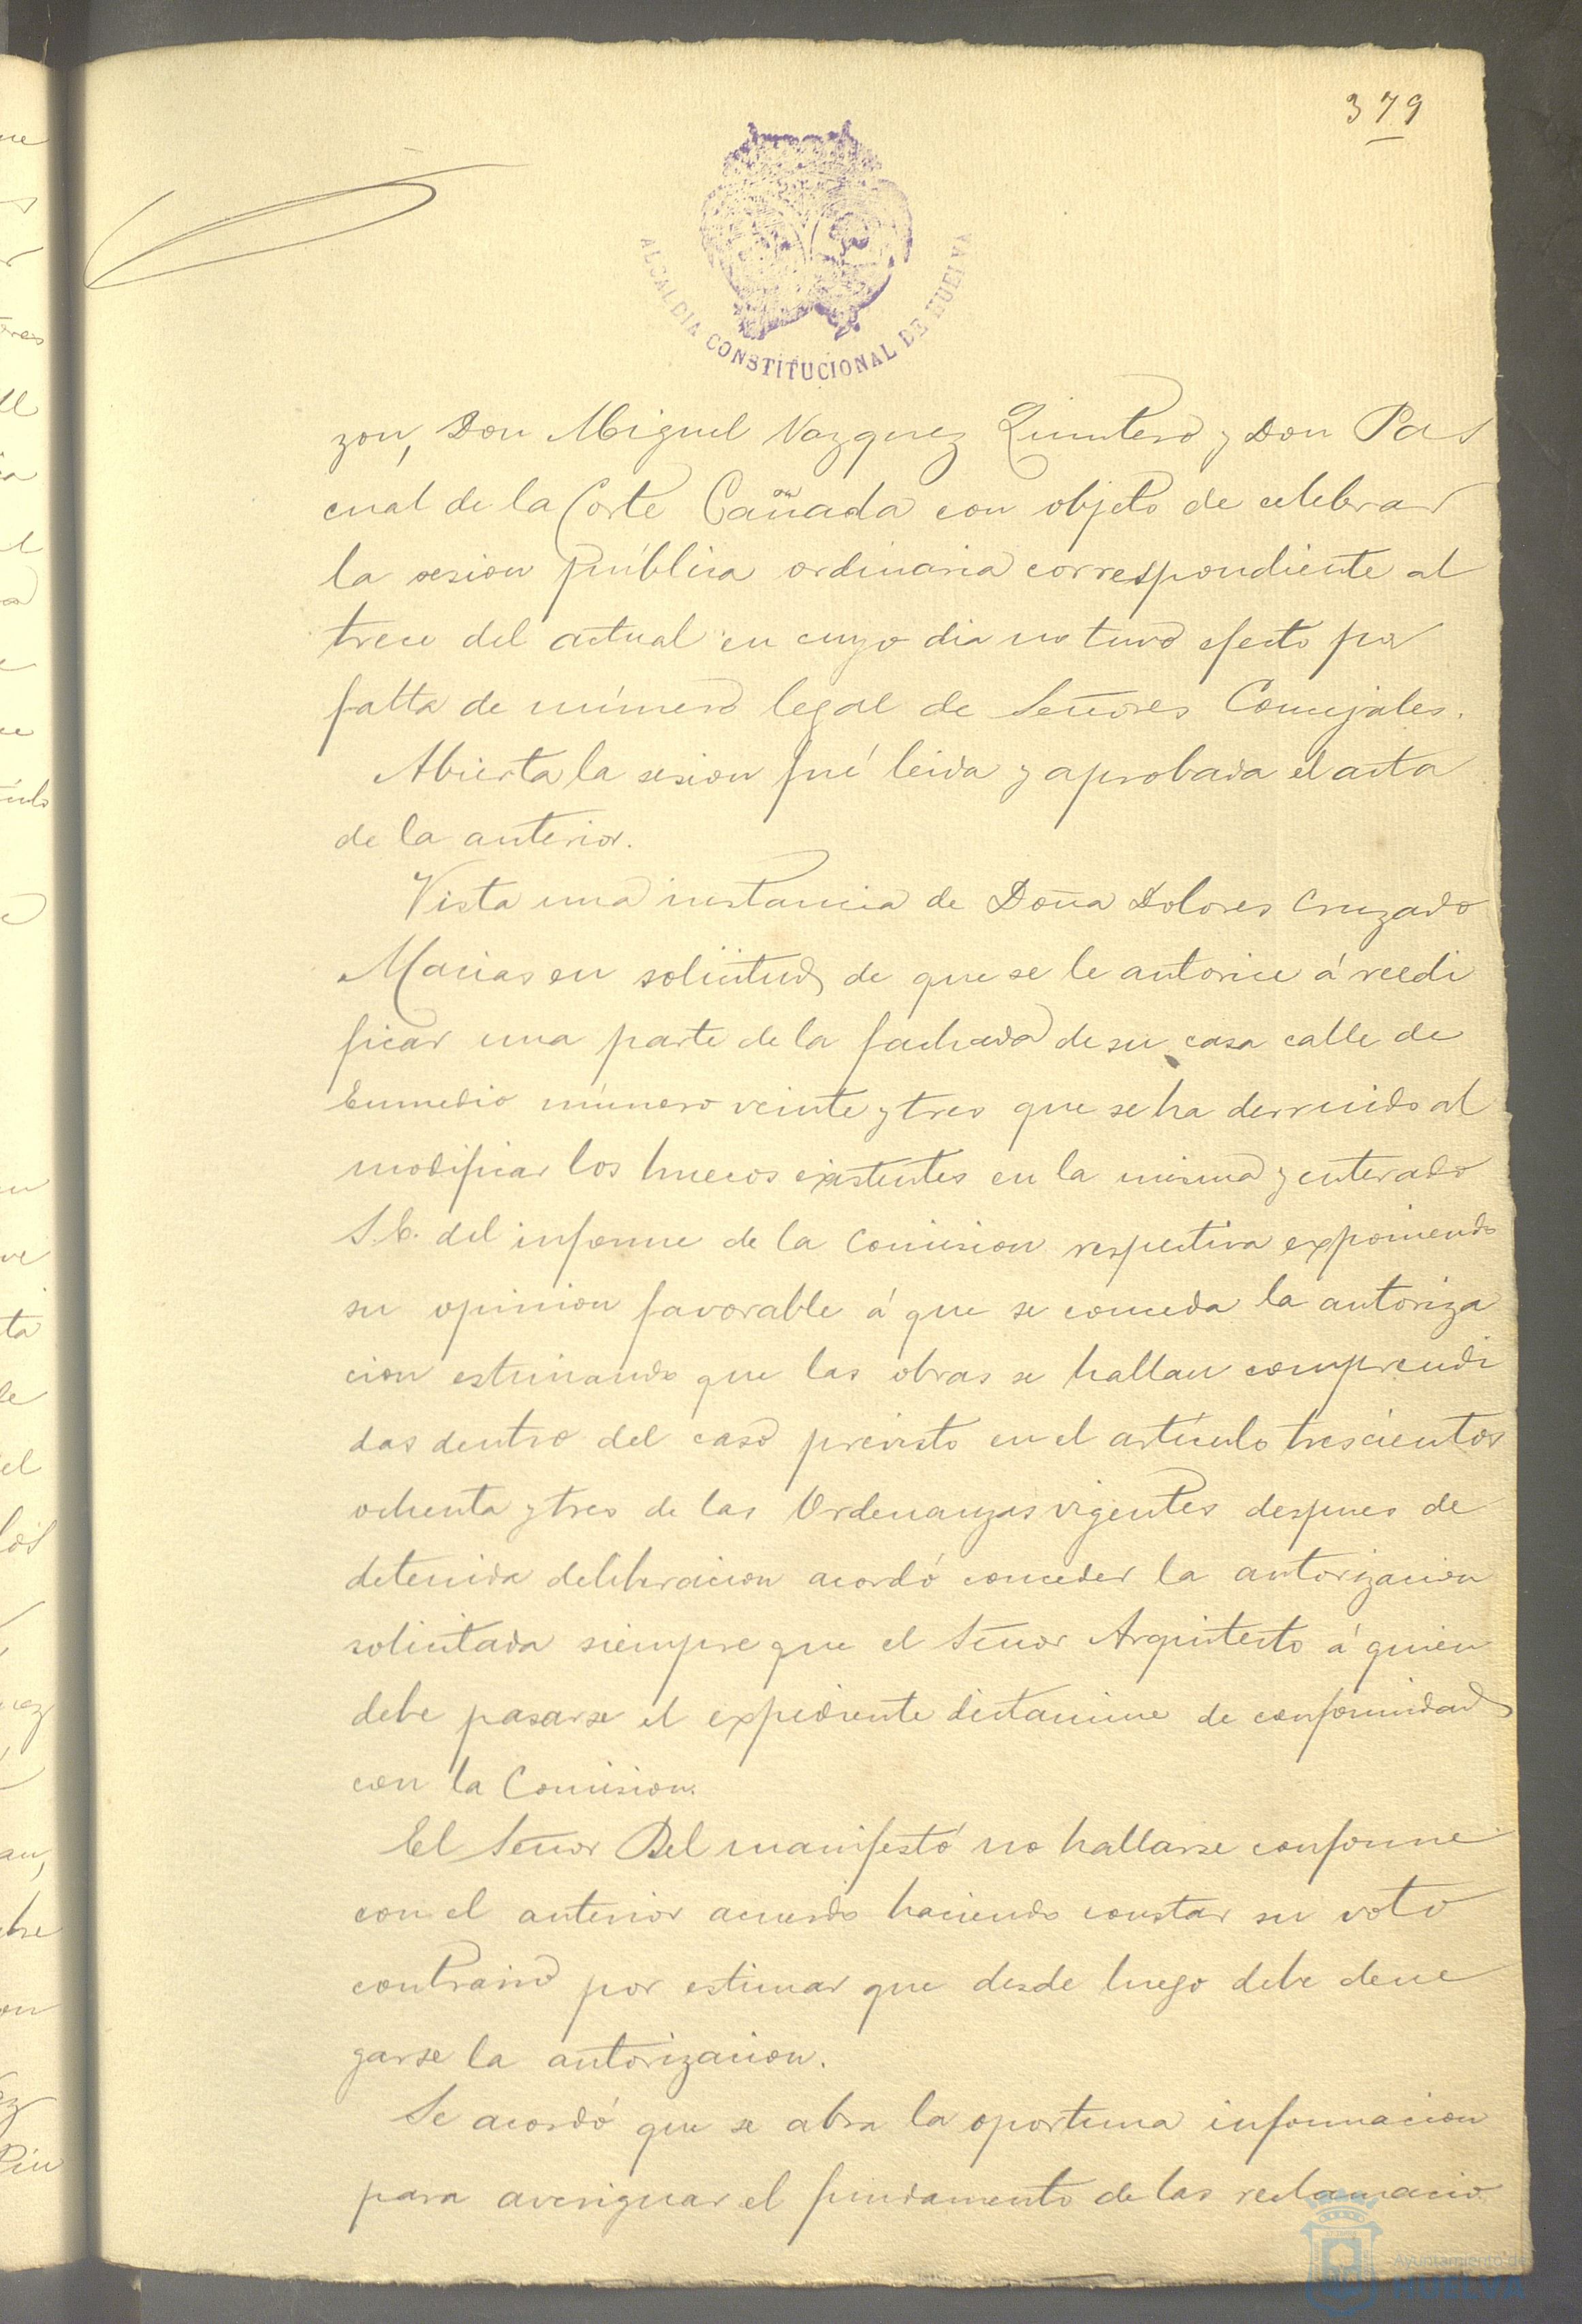 379
ALCALDIA CONSTITUCIONAL DE HUELVA
zon, Don Miguel Vazquez Quintero y Don Pas
cual de la Corte Cañada con objeto de celebrar
la sesion pública ordinaria correspondiente al
trece del actual en cuyo dia no tuvo efecto por
falta de número legal de Señores Concejales.
Abierta la sesion fué leida y aprobada el acta
de la anterior.
Vista una instancia de Doña Dolores Cruzado
Macias en solicitud de que se le autorice á reedi
ficar una parte de la fachada de su casa calle de
Enmedio número veinte y tres que se ha derruido al
modificar los huecos existentes en la misma y enterado
S.E. del informe de la Comision respectiva exponiendo
su opinion favorable á que se conceda la autoriza
cion estimando que las obras se hallan comprendi
das dentro del caso previsto en el artículo trescientos
ochenta y tres de las Ordenanzas vigentes despues de
detenida deliberacion acordó conceder la autorizacion
solicitada siempre que el Señor Arquitecto á quien
debe pasarse el expediente dictamine de conformidad
con la Comision.
El Señor Bel manifestó no hallarse conforme
con el anterior acuerdo haciendo constar su voto
contrario por estimar que desde luego debe dene
garse la autorizacion.
Se acordó que se abra la oportuna informacion
para averiguar el fundamento de las reclamacio
Ayuntamiento de
HUELVA